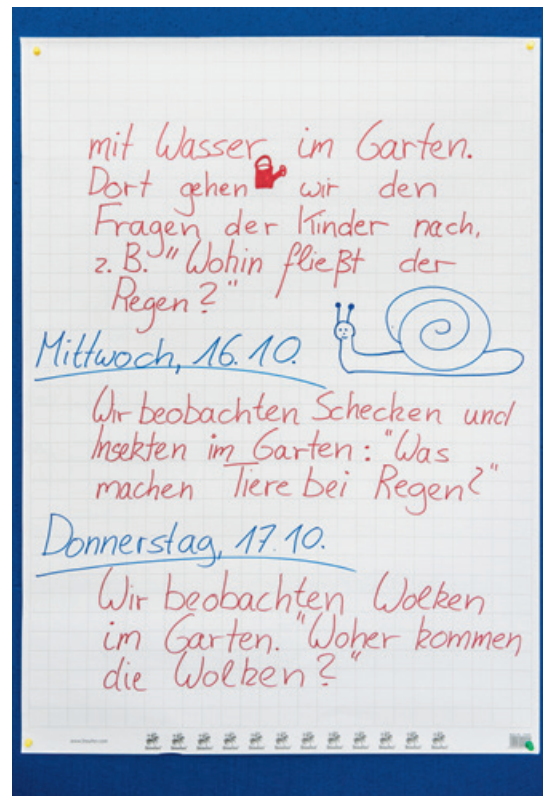 mit Wasser im Garten.
Dort gehen wir den
Fragen der Kinder nach,
z. B. "Wohin fließt der
Regen?"
Mittwoch, 16.10.
Wir beobachten Schecken und
Insekten im Garten: "Was
machen Tiere bei Regen?"
Donnerstag, 17.10.
Wir beobachten Wolken
im Garten. "Woher kommen
die Wolken?"